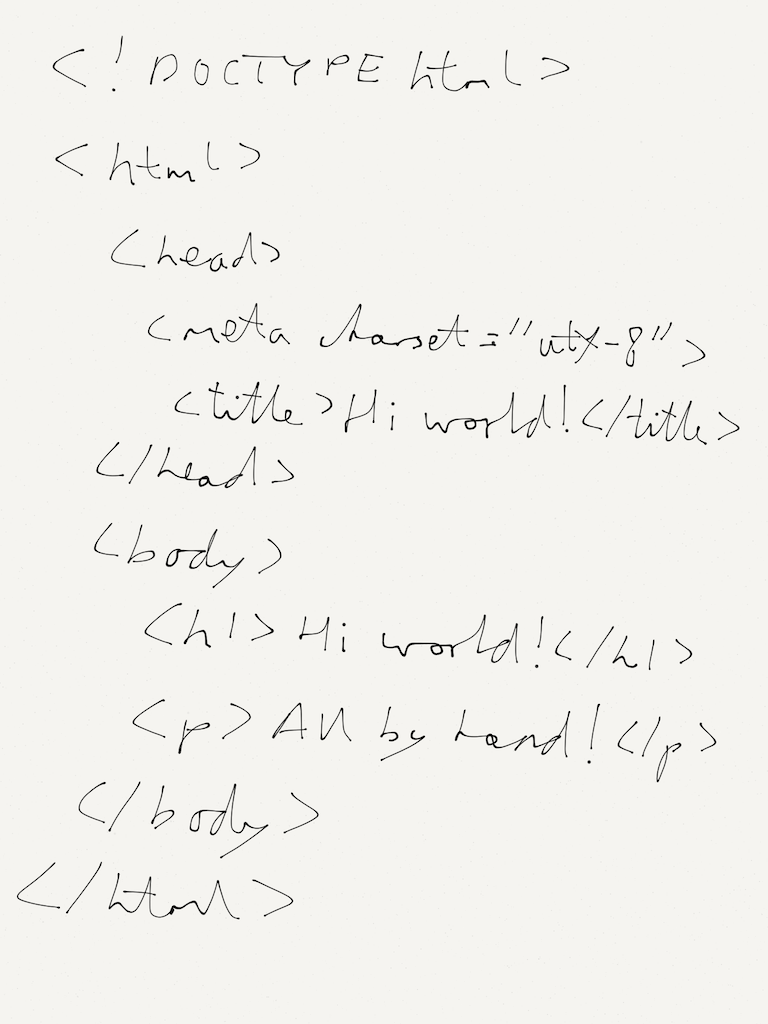 <!DOCTYPE html>
<html>
<head>
<meta charset="utf-8">
<title>Hi world!</title>
</head>
<body>
<h1>Hi world!</h1>
<p>All by hand!</p>
</body>
</html>